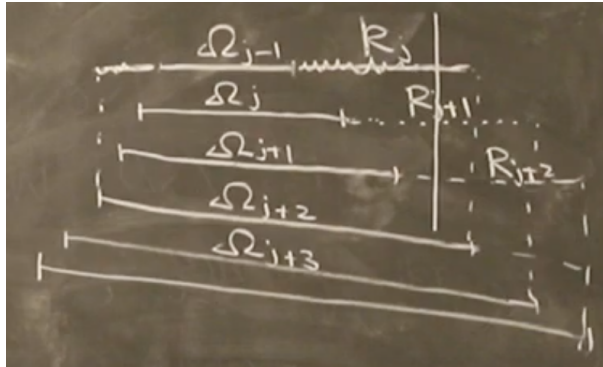 Ω_{j-1} R_j
Ω_j R_{j+1}
Ω_{j+1} R_{j+2}
Ω_{j+2}
Ω_{j+3}